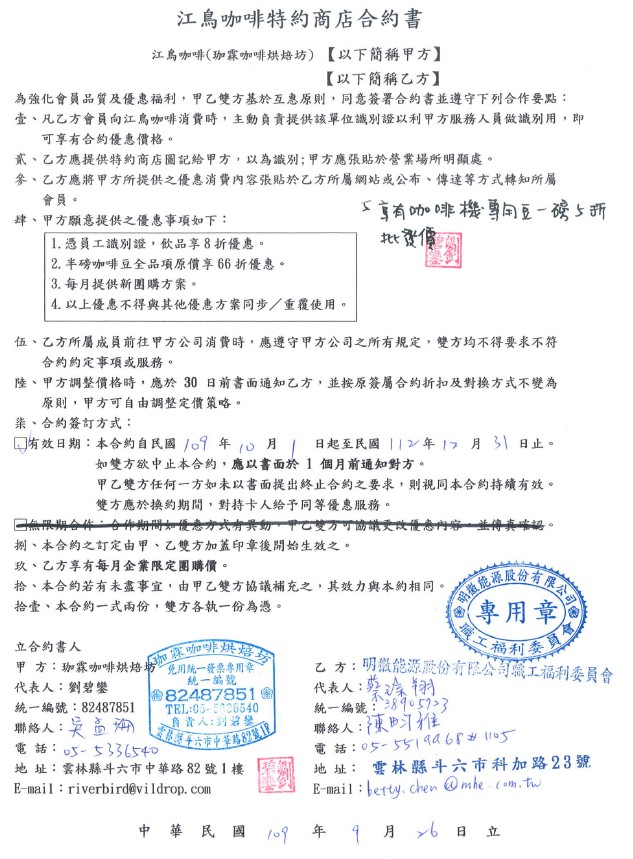 江鳥咖啡特約商店合約書
江鳥咖啡(珈霖咖啡烘焙坊)【以下簡稱甲方】
【以下簡稱乙方】
為強化會員品質及優惠福利，甲乙雙方基於互惠原則，同意簽署合約書並遵守下列合作要點：
壹、凡乙方會員向江鳥咖啡消費時，主動負責提供該單位識別證以利甲方服務人員做識別用，即
可享有合約優惠價格。
貳、乙方應提供特約商店圖記給甲方，以為識別;甲方應張貼於營業場所明顯處。
參、乙方應將甲方所提供之優惠消費內容張貼於乙方所屬網站或公布、傳達等方式轉知所屬
會員。
肆、甲方願意提供之優惠事項如下：
5 享有咖啡機專用豆一磅5折
批發價
1.憑員工識別證，飲品享8折優惠。
2.半磅咖啡豆全品項原價享66折優惠。
3.每月提供新團購方案。
4.以上優惠不得與其他優惠方案同步／重覆使用。
伍、乙方所屬成員前往甲方公司消費時，應遵守甲方公司之所有規定，雙方均不得要求不符
合約約定事項或服務。
陸、甲方調整價格時，應於 30 日前書面通知乙方，並按原簽屬合約折扣及對換方式不變為
原則，甲方可自由調整定價策略。
柒、合約簽訂方式：
□有效日期：本合約自民國 109 年 10 月 1 日起至民國 112 年 12 月 31 日止。
如雙方欲中止本合約，應以書面於 1 個月前通知對方。
甲乙雙方任何一方如未以書面提出終止合約之要求，則視同本合約持續有效。
雙方應於換約期間，對持卡人給予同等優惠服務。
□無限期合作：合作期間如優惠方式有異動，甲乙雙方可協議更改優惠內容，並傳真確認。
捌、本合約之訂定由甲、乙雙方加蓋印章後開始生效之。
玖、乙方享有每月企業限定團購價。
拾、本合約若有未盡事宜，由甲乙雙方協議補充之，其效力與本約相同。
拾壹、本合約一式兩份，雙方各執一份為憑。
明徽能源股份有限公司
專用章
職工福利委員會
立合約書人
珈霖咖啡烘焙坊
免用統一發票專用章
統一編號
82487851
TEL:05-5336540
負責人:劉碧鑾
雲林縣斗六市中華路82號1F
甲 方：珈霖咖啡烘焙坊
代表人：劉碧鑾
統一編號：82487851
聯絡人：吳孟珊
電 話：05-5336540
地 址：雲林縣斗六市中華路 82 號 1 樓
E-mail：riverbird@vildrop.com
乙 方：明徽能源股份有限公司職工福利委員會
代表人：
統一編號：38905733
聯絡人：
電 話：05-5519968#1105
地 址： 雲林縣斗六市科加路23號
E-mail：betty.chen@mhe.com.tw
中 華 民 國 109 年 9 月 26 日 立